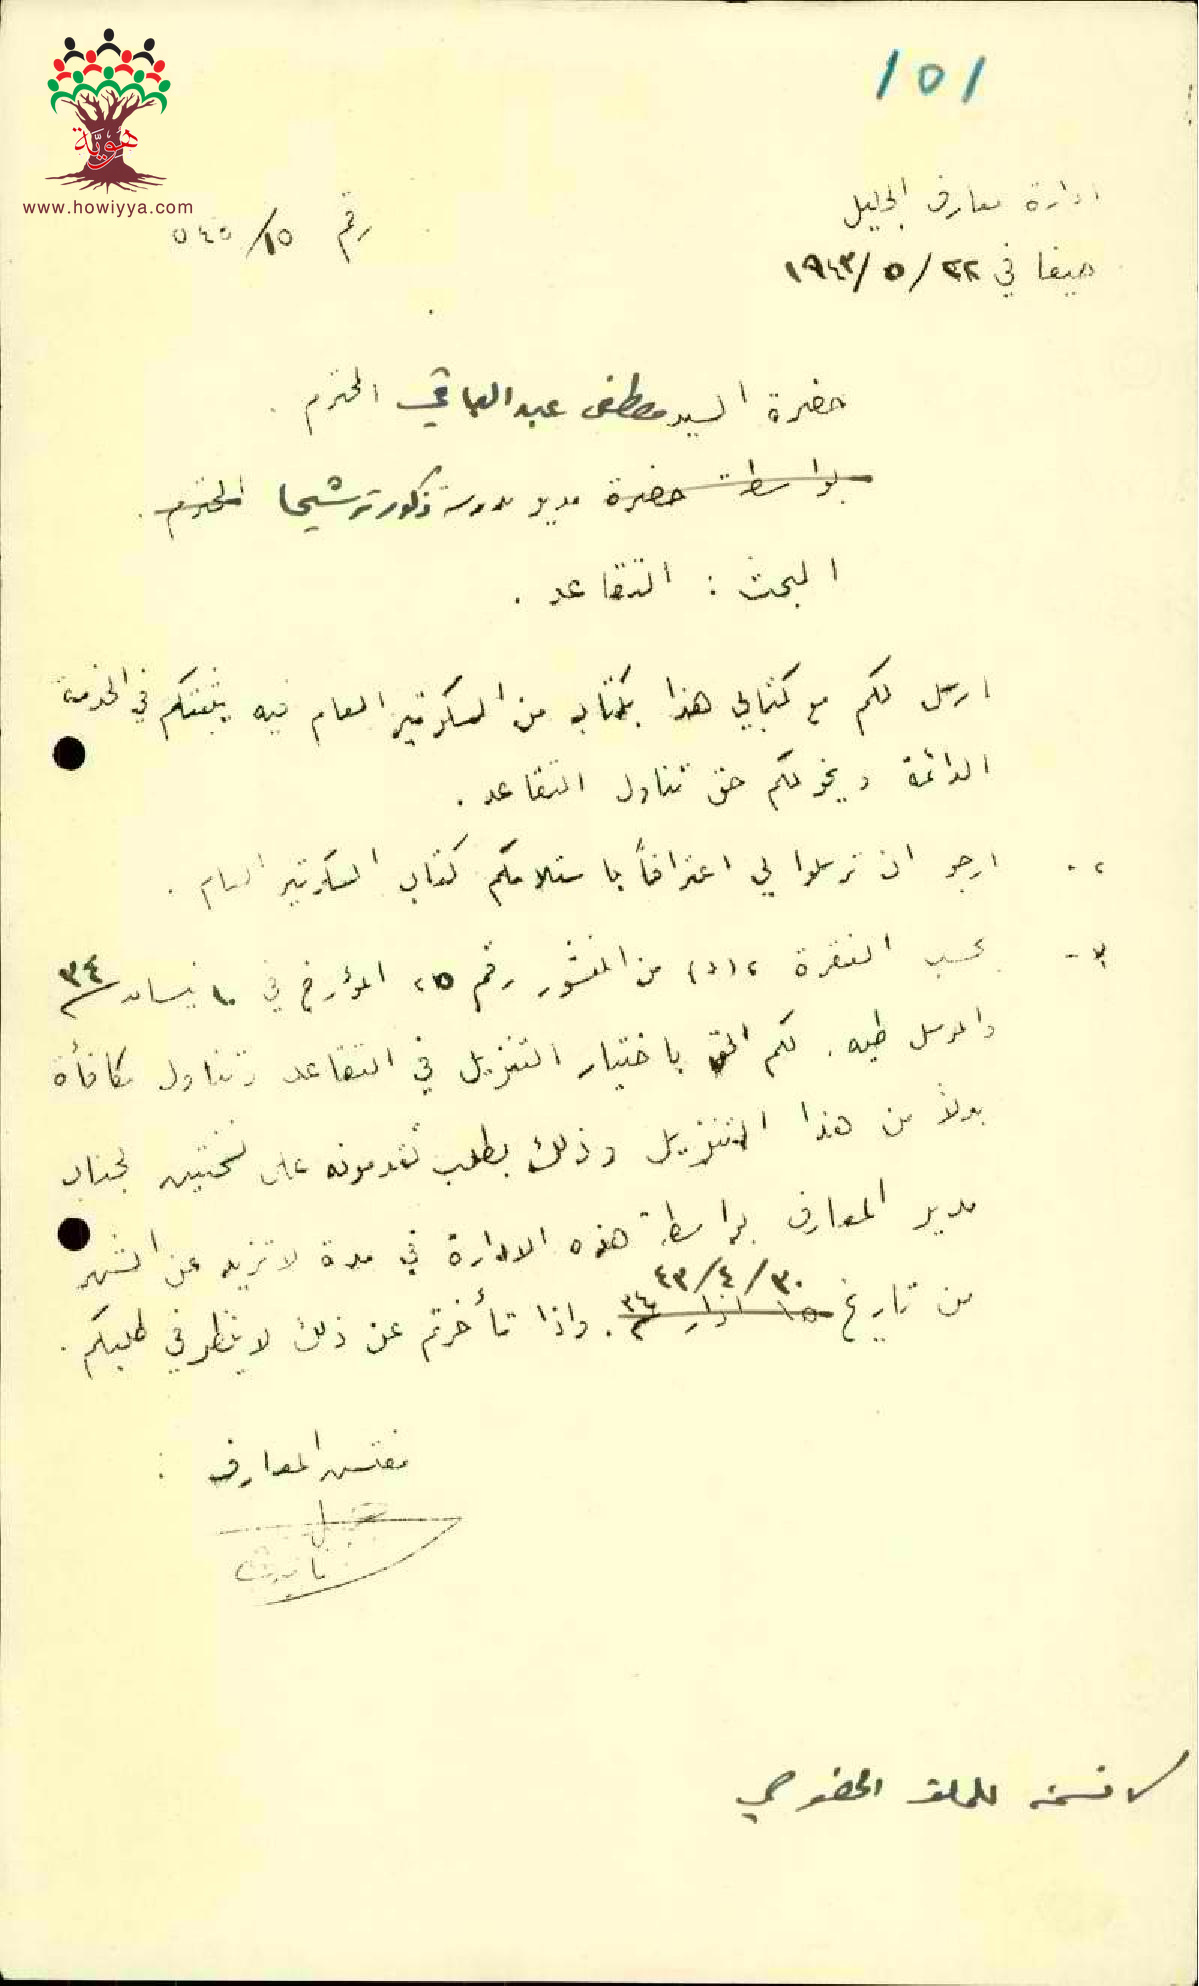 هويّة
www.howiyya.com
١٥١
ادارة معارف الجليل
رقم ١٥/٥٤٥
حيفا في ٢٢/٥/١٩٤٣
حضرة السيد مصطفى عبد الباقي المحترم .
بواسطة حضرة مدير مدرسة ذكور ترشيحا المحترم .
البحث : التقاعد .
ارسل لكم مع كتابي هذا كتاب من السكرتير العام فيه يثبتكم في الخدمة
الدائمة ويخولكم حق تناول التقاعد .
٢- ارجو ان ترسلوا لي اعترافاً باستلامكم كتاب السكرتير العام .
٣- بحسب الفقرة ٢(د) من المنشور رقم ٢٥ المؤرخ في ١٠ نيسان ٣٤
والمرسل طيه . لكم الحق باختيار التنزيل في التقاعد وتناول مكافأة
بدلاً من هذا التنزيل وذلك بطلب تقدمونه على نسختين لجناب
مدير المعارف بواسطة هذه الادارة في مدة لا تزيد عن الشهر
٣٠/٤/٤٣
من تاريخ ١٥ اذار ٣٤ . واذا تأخرتم عن ذلك لا ينظر في طلبكم .
مفتش المعارف
نسخة للملف الخصوصي